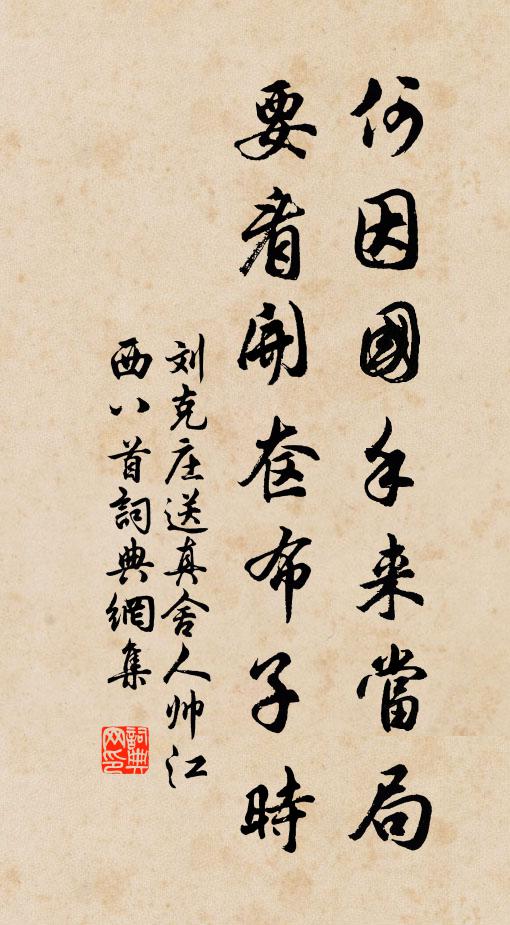 何因國手来當局
要看開奁布子時
刘克庄送真舍人帅江
西八首詞典網集
詞典
网印